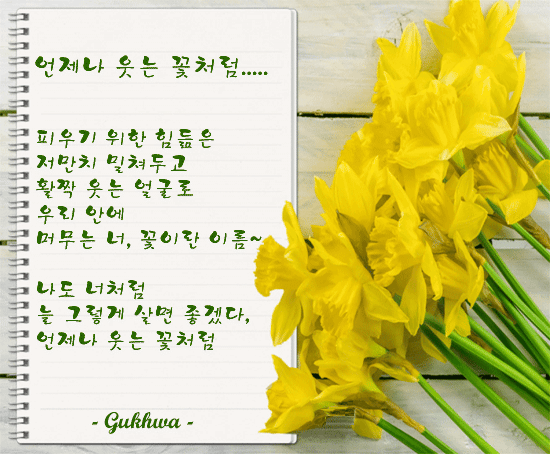 언제나 웃는 꽃처럼.....
피우기 위한 힘듦은
저만치 밀쳐두고
활짝 웃는 얼굴로
우리 안에
머무는 너, 꽃이란 이름~
나도 너처럼
늘 그렇게 살면 좋겠다,
언제나 웃는 꽃처럼
- Gukhwa -